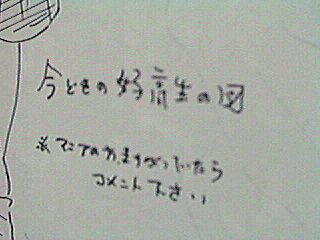 今どきの女子高生の図
※マニアの方 まちがっていたら
コメント下さい